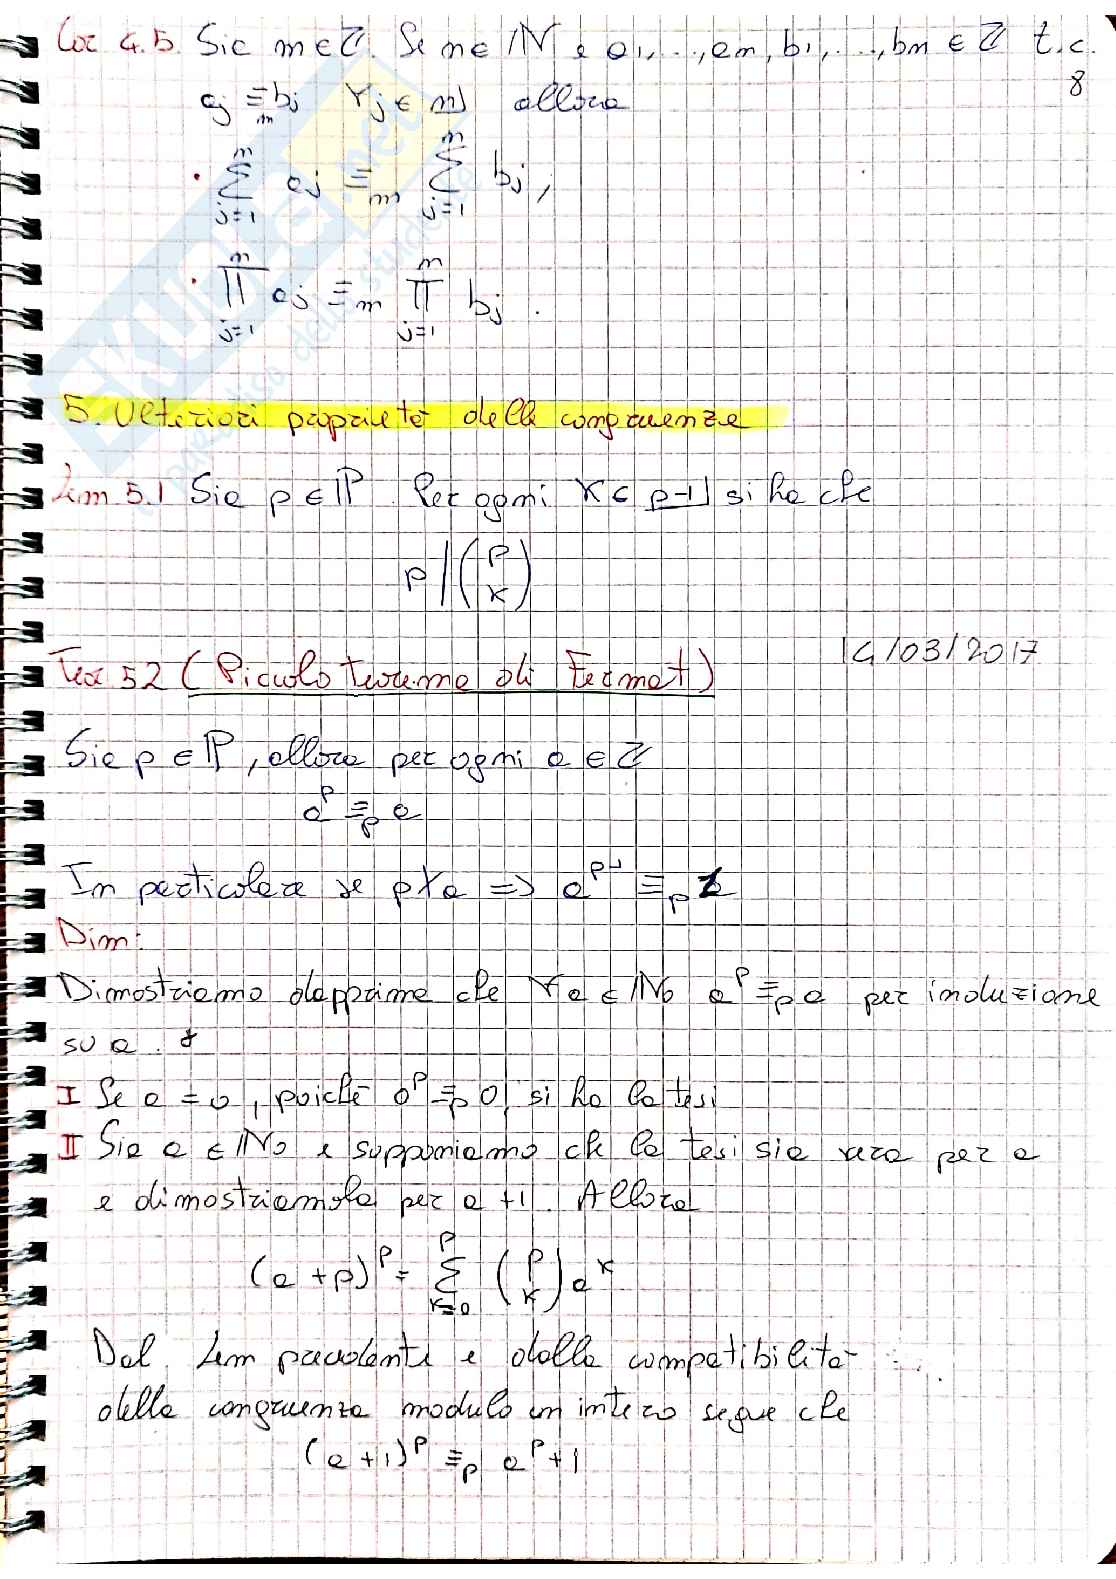 Cor 4.5. Sia m∈ℤ. Se n∈ℕ e a₁,...,an, b₁,...,bn ∈ ℤ t.c.
8
aj ≡m bj ∀j∈ n] allora
• ∑_{j=1}^{n} aj ≡m ∑_{j=1}^{n} bj,
• ∏_{j=1}^{n} aj ≡m ∏_{j=1}^{n} bj.
5. Ulteriori proprietà delle congruenze
Lem 5.1 Sia p∈ℙ. Per ogni k∈ p-1] si ha che
p | (p k)
14/03/2017
Teor 5.2 (Piccolo teorema di Fermat)
Sia p∈ℙ, allora per ogni a∈ℤ
a^p ≡p a
In particolare se p∤a => a^{p-1} ≡p 1
Dim:
Dimostriamo dapprima che ∀a∈ℕ₀ a^p ≡p a per induzione
su a.
I Se a=0, poiché 0^p ≡p 0, si ha la tesi
II Sia a∈ℕ₀ e supponiamo ch la tesi sia vera per a
e dimostriamola per a+1. Allora
(a+p)^p = ∑_{k=0}^{p} (p k) a^k
Dal Lem precedente e dalla compatibilità
della congruenza modulo un intero segue che
(a+1)^p ≡p a^p+1
SKUOLA.net